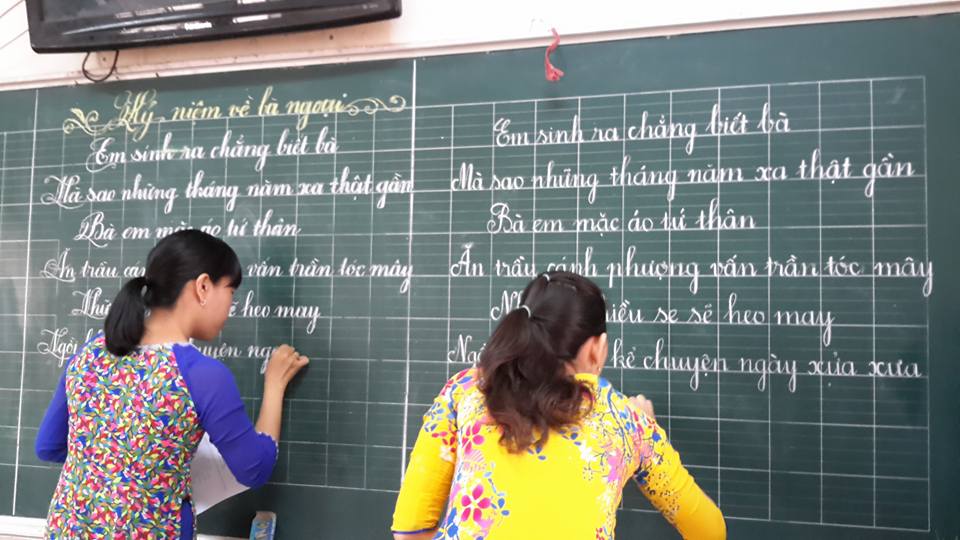 Kỷ niệm về bà ngoại
Em sinh ra chẳng biết bà
Mà sao những tháng năm xa thật gần
Bà em mặc áo tứ thân
Ăn trầu vấn trần tóc mây
sẽ heo may
Em sinh ra chẳng biết bà
Mà sao những tháng năm xa thật gần
Bà em mặc áo tứ thân
Ăn trầu cánh phượng vấn trần tóc mây
se sẽ heo may
kể chuyện ngày xửa xưa